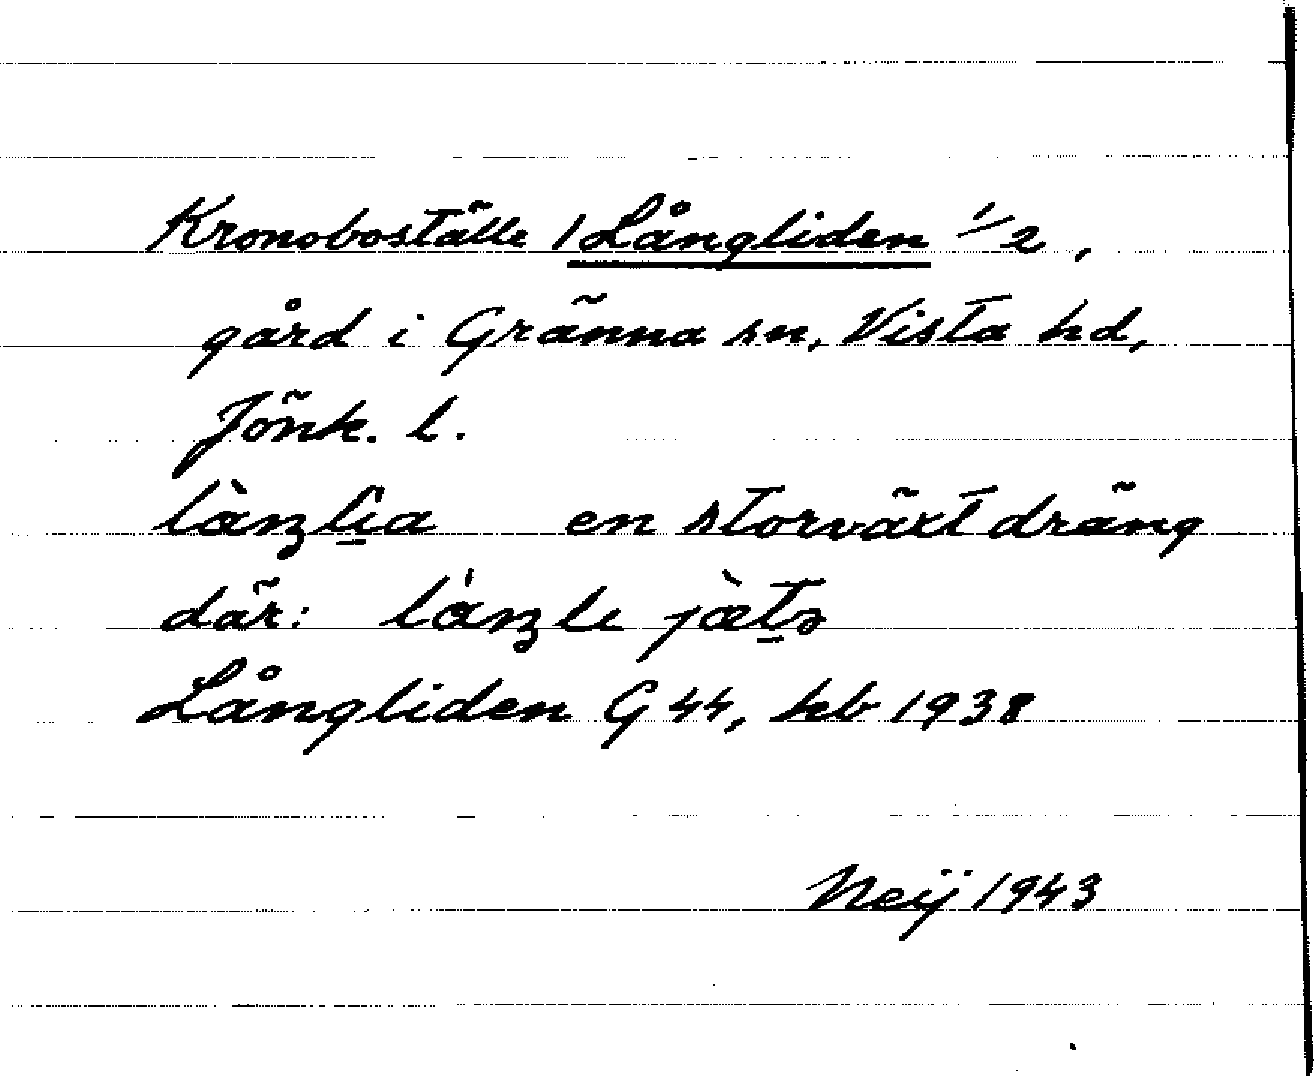 Kronoboställe / Långliden 1/2,
gård i Gränna sn, Vista hd,
Jönk. l.
en storväxt dräng
där:
Långliden G 44, hb 1938
Neij 1943